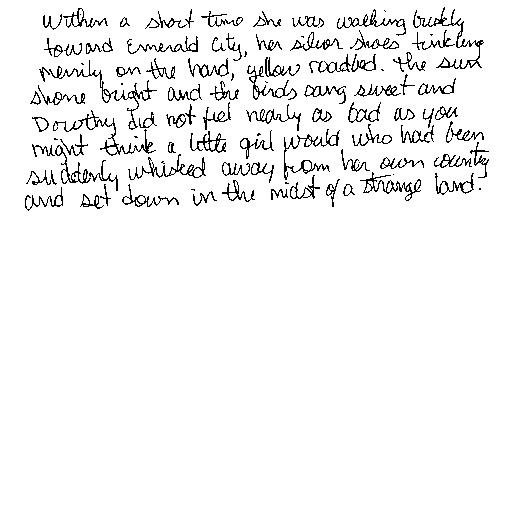 Within a short time she was walking briskly
toward Emerald City, her silver shoes tinkling
merrily on the hard, yellow roadbed. The sun
shone bright and the birds sang sweet and
Dorothy did not feel nearly as bad as you
might think a little girl would who had been
suddenly whisked away from her own country
and set down in the midst of a strange land.